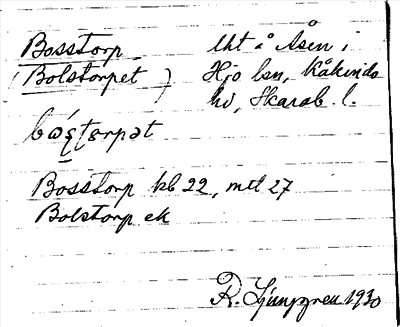 Bosstorp Uht å Åsen i
(Bolstorpet) Hjo lsn, Kåkinds
hd, Skarab. l.
Bosstorp kb 22, mtl 27
Bolstorp ek
R. Ljunggren 1930